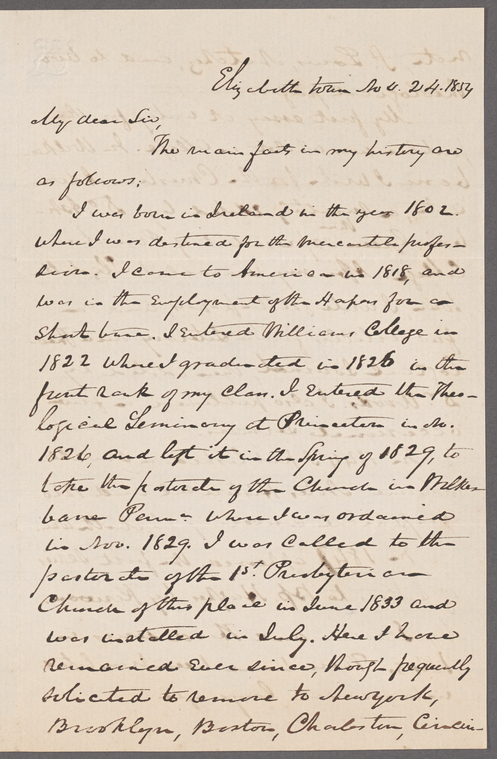 Elizabeth town Nov. 24. 1854
My dear Sir,
The main facts in my history are
as follows;
I was born in Ireland in the year 1802.
where I was destined for the mercantile profes-
sion. I came to America in 1818, and
was in the Employment of the Harpers for a
short time. I Entered Williams College in
1822 where I graduated in 1826 in the
front rank of my class. I Entered the Theo-
logical Seminary at Princeton in Nov.
1826, and left it in the Spring of 1829, to
take the pastorate of the Church in Wilkes
barre Penna. where I was ordained
in Nov. 1829. I was called to the
pastorate of the 1st. Presbyterian
Church of this place in June 1833 and
was installed in July. Here I have
remained Ever since, though frequently
solicited to remove to Newyork,
Brooklyn, Boston, Charleston, Cincin-